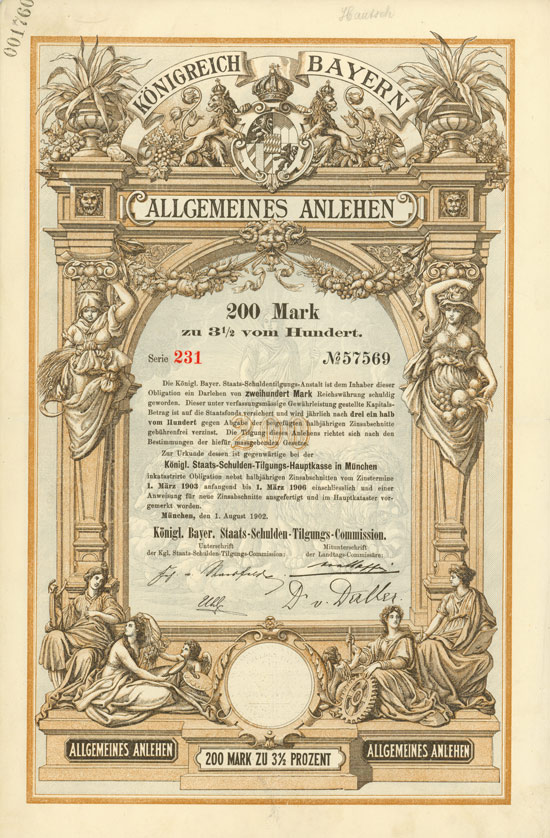 001760
KÖNIGREICH BAYERN
ALLGEMEINES ANLEHEN
200 Mark
zu 3 1/2 vom Hundert.
Serie 231 № 57569
Die Königl. Bayer. Staats-Schuldentilgungs-Anstalt ist dem Inhaber dieser
Obligation ein Darlehen von zweihundert Mark Reichswährung schuldig
geworden. Dieser unter verfassungsmässige Gewährleistung gestellte Kapitals-
Betrag ist auf die Staatsfonds versichert und wird jährlich nach drei ein halb
vom Hundert gegen Abgabe der beigefügten halbjährigen Zinsabschnitte
gebührenfrei verzinst. Die Tilgung dieses Anlehens richtet sich nach den
Bestimmungen der hiefür massgebenden Gesetze.
Zur Urkunde dessen ist gegenwärtige bei der
Königl. Staats-Schulden-Tilgungs-Hauptkasse in München
inkatastrirte Obligation nebst halbjährigen Zinsabschnitten vom Zinstermine
1. März 1903 anfangend bis 1. März 1906 einschliesslich und einer
Anweisung für neue Zinsabschnitte ausgefertigt und im Hauptkataster vor-
gemerkt worden.
München, den 1. August 1902.
Königl. Bayer. Staats-Schulden-Tilgungs-Commission.
Unterschrift Mitunterschrift
der Kgl. Staats-Schulden-Tilgungs-Commission: der Landtags-Commissäre:
Dr. v. Daller.
ALLGEMEINES ANLEHEN
200 MARK ZU 3½ PROZENT
ALLGEMEINES ANLEHEN